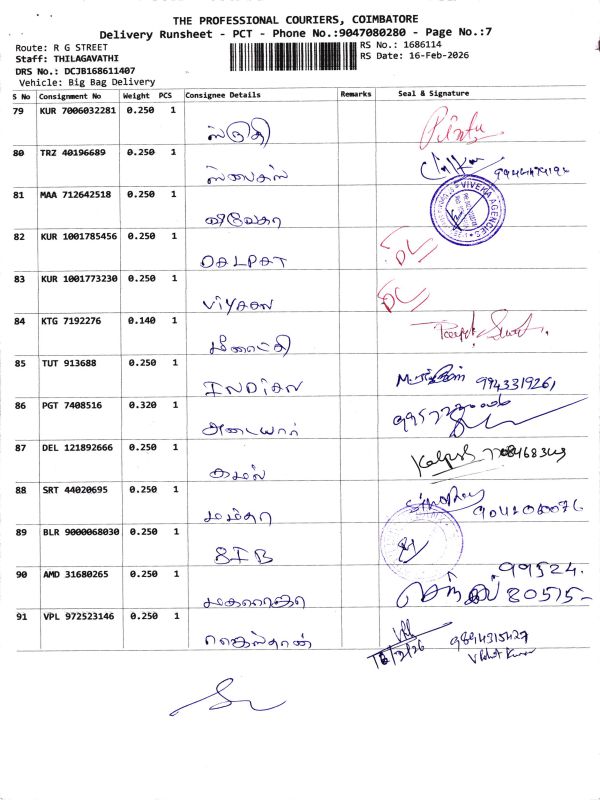 THE PROFESSIONAL COURIERS, COIMBATORE
Delivery Runsheet - PCT - Phone No.:9047080280 - Page No.:7
Route: R G STREET
RS No.: 1686114
Staff: THILAGAVATHI
RS Date: 16-Feb-2026
DRS No.: DCJB168611407
Vehicle: Big Bag Delivery
S No Consignment No Weight PCS Consignee Details Remarks Seal & Signature
79 KUR 7006032281 0.250 1
ஸ்ருதி
80 TRZ 40196689 0.250 1
81 MAA 712642518 0.250 1
விவேகா
VIVEKA AGENCIES
82 KUR 1001785456 0.250 1
DALPAT DL
83 KUR 1001773230 0.250 1
VIYAAN DL
84 KTG 7192276 0.140 1
மீனாட்சி
85 TUT 913688 0.250 1
INDIAN 9943319261
86 PGT 7408516 0.320 1
அடையார்
87 DEL 121892666 0.250 1
கமல் Kalpesh
88 SRT 44020695 0.250 1
மம்தா
89 BLR 9000068030 0.250 1
SIB
90 AMD 31680265 0.250 1
99524
மகாராஜா 80575
91 VPL 972523146 0.250 1
ராஜஸ்தான் 9894315427